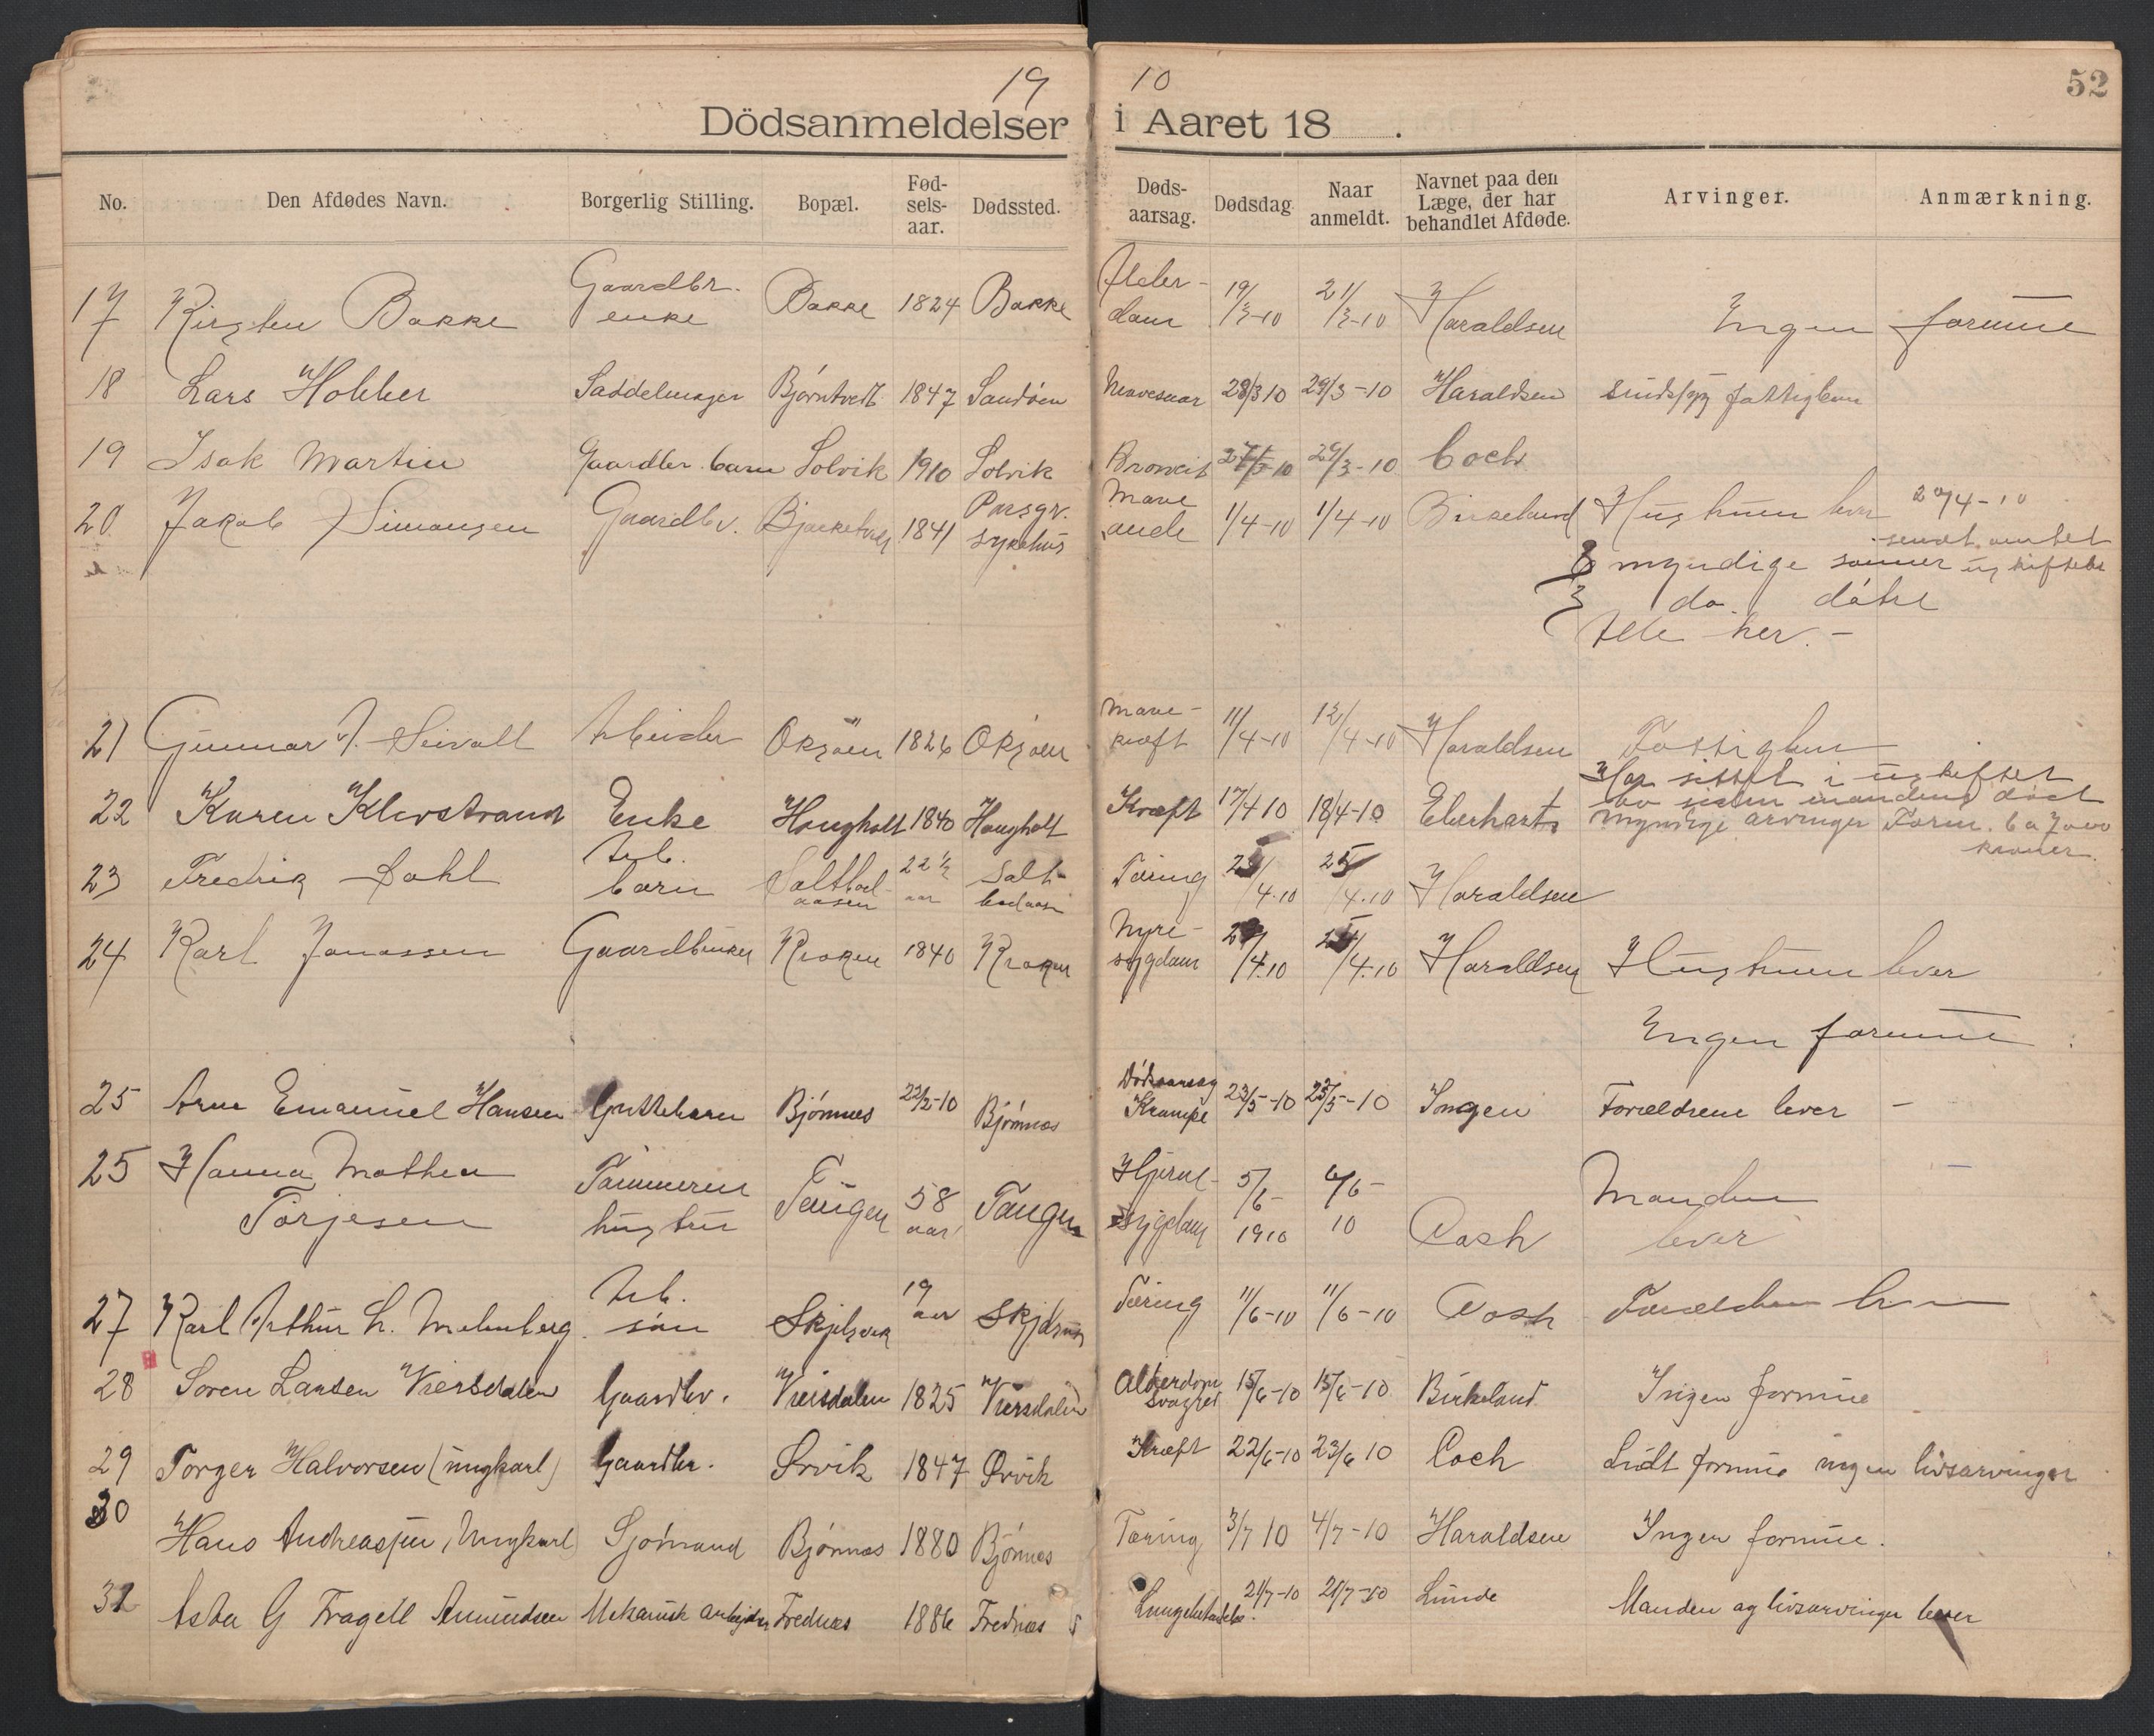 19 10
52
Dödsanmeldelser i Aaret 18 .
No. Den Afdødes Navn. Borgerlig Stilling. Bopæl. Fød-sels-aar. Dødssted. Døds-aarsag. Dødsdag Naar anmeldt. Navnet paa den Læge, der har behandlet Afdøde. Arvinger. Anmærkning.
17 Kirsten Bakke Gaardbr. enke Bakke 1824 Bakke Alder-dom 19/3-10 21/3-10 Haraldsen Ingen formue
18 Lars Holher Saddelmager Bjørntvedt 1847 Sandøen 28/3 10 29/3-10 Haraldsen fattiglem
19 Isak Martin Gaardbr. barn Solvik 1910 Solvik 27/3-10 29/3-10 Coch
20 Jakob Simonsen Gaardbr. 1841 Porsgr. sykehus Mave 1/4-10 1/4-10 Hustruen lever 20/4-10
sendt amtet
myndige sønner
3 do. døtre
Alle her.-
21 Gunnar J. Arbeider Oksøen 1826 Oksøen Mave-kræft 11/4-10 12/4-10 Haraldsen Fattiglem
22 Karen Klevstrand Enke Hougholt 1840 Hougholt Kræft 17/4 10 18/4-10 Eberhardt Har sittet i uskiftet
bo siden mandens død
myndige arvinger Form. ca 7000
kroner.
23 Fredrik Dahl Arb. barn Saltbod-aasen 22 1/2 aar Salt-bodaasen Tæring 4.10 25/4.10 Haraldsen
24 Karl Jonassen Gaardbruker Kroken 1840 Kroken Nyre-sygdom 4.10 4.10 Haraldsen Hustruen lever
Ingen formue
25 Arne Emanuel Hansen Guttebarn Bjønnes 22/2-10 Bjønnes Dødsaarsag Krampe 23/5-10 23/5-10 Ingen Forældrene lever -
25 Hanna Mathea Torjesen Tømmerm hustru Tangen 58 aar Tangen Hjerne-sygdom 5/6-1910 6/6-10 Cosh Manden lever
27 Karl Arthur L. Malmberg Arb. søn Skjelsvik 19 aar Skjelsvik Tæring 11/6-10 11/6-10 Cosh Forældrene lever
28 Søren Larsen Viersdalen Gaardbr. Viersdalen 1825 Viersdalen Alderdom svaghed 15/6-10 15/6-10 Birkeland Ingen formue
29 Torger Halvorsen (ungkarl) Gaardbr. Ørvik 1847 Ørvik Kræft 22/6-10 23/6 10 Coch Lidt formue ingen livsarvinger
30 Hans Andreassen, Ungkarl Sjømand Bjønnes 1880 Bjønnes Tæring 3/7 10 4/7-10 Haraldsen Ingen formue.
31 Asta G Fragell Amundsen Mekanisk arbejder Frednes 1886 Frednes Lungebetændelse. 21/7-10 21/7-10 Lunde Manden og livsarvinger lever